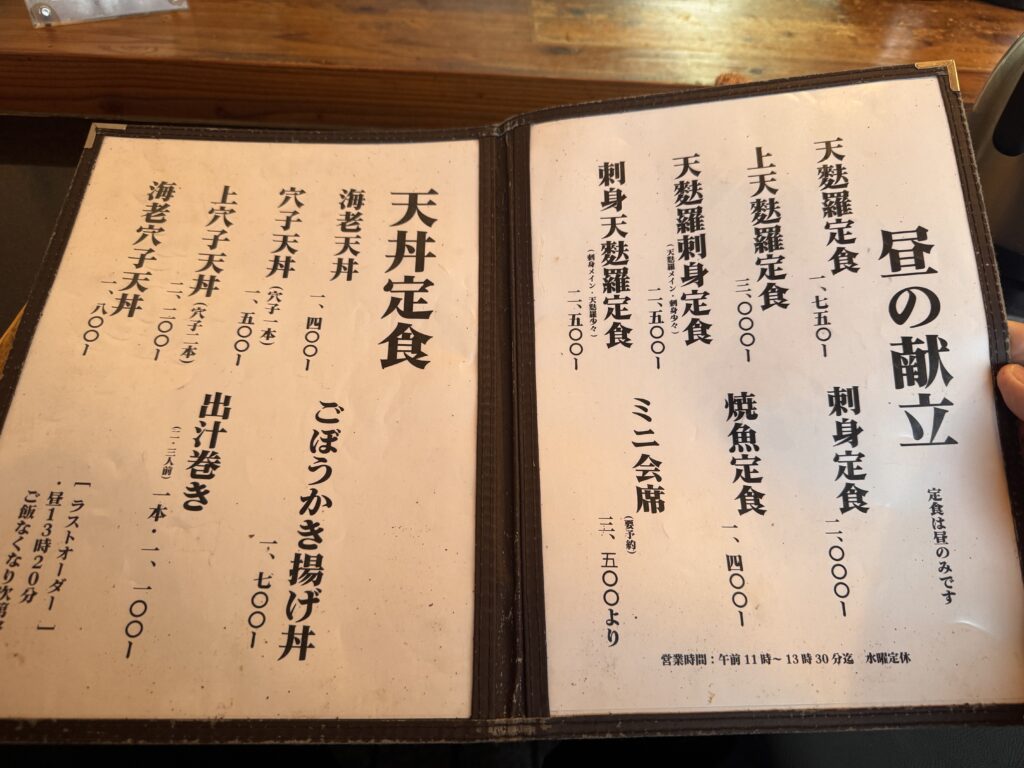 昼の献立
定食は昼のみです
天麩羅定食
一、七五〇ー
上天麩羅定食
三、〇〇〇ー
天麩羅刺身定食
(天麩羅メイン・刺身少々)
二、五〇〇ー
刺身天麩羅定食
(刺身メイン・天麩羅少々)
二、五〇〇ー
刺身定食
二、〇〇〇ー
焼魚定食
一、四〇〇ー
ミニ会席
(要予約)
三、五〇〇より
営業時間：午前11時～13時30分迄 水曜定休
天丼定食
海老天丼
一、四〇〇ー
穴子天丼(穴子一本)
一、五〇〇ー
上穴子天丼(穴子二本)
二、二〇〇ー
海老穴子天丼
一、八〇〇ー
ごぼうかき揚げ丼
一、七〇〇ー
出汁巻き
(二・三人前)一本・一、一〇〇ー
[ラストオーダー]
・昼13時20分
ご飯なくなり次第